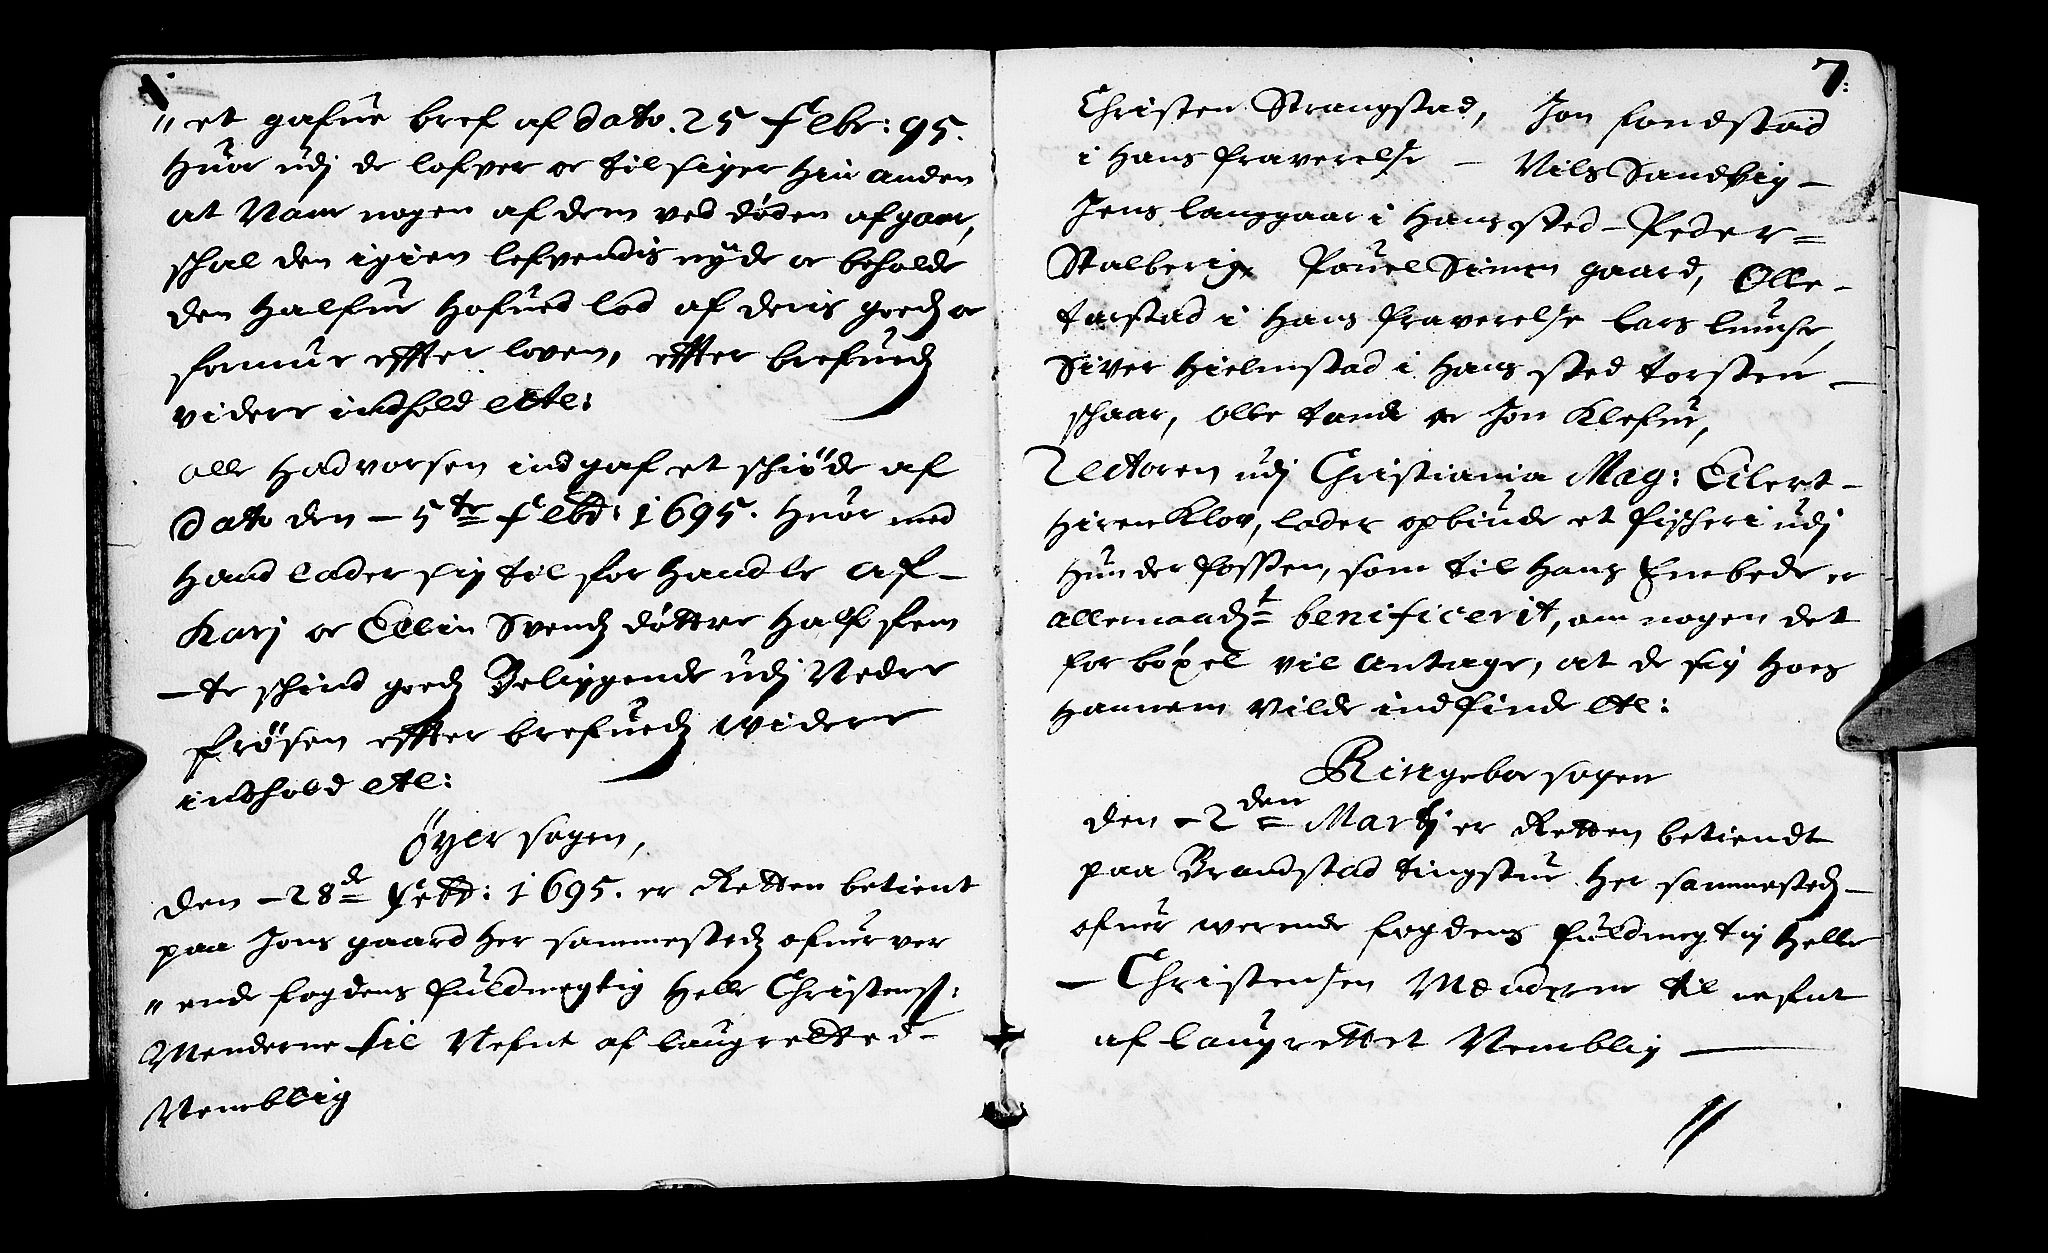 " et gafue bref af dato. 25 Febr: 95.
huor udj de lofver oc tilsiger hin anden
at Naar nogen af dem ved døden afgaar,
schal den igien lefvendis nyde oc beholde
den halfue hofued lod af deris goedz oc
formue effter loven, effter brefuedz
videre indhold etc:
Olle Hadvorsen indgaf et schiøde af
Dato den - 5te Febr: 1695. huor med
hand lader sig til for handle af -
Karj oc Ellin Svendz døttre half fem
- te schind goedz Beliggende udj Nedre
Frøsen effter brefuedz widere
indhold etc:
Øyer sogen,
den - 28de Febr: 1695. er Retten betient
paa Jons gaard her sammestedz ofuer ver
" ende fogdens fuldmegtig Helle Christens:
Menderne til Nefnt af laugretted -
Nemblig
7:
Christen Strangstad, Jon fondstad
i hans fraverelse - Nils Sandvig -
Jens langgaar i hans sted - Peder =
Stalberig, Pouel Simen gaard, Olle -
torstad i hans fraverelse lars lunche,
Siver Hielmstad i hans sted torsten -
schaar, Olle tande oc Jon Klefue,
Lectoren udj Christiania Mag: Eilert -
Hiren Klov, lader opbiude et fischeri udj
Hunder fossen, som til hans Embede er
allernaadt benificerit, om nogen det
for bøxel vil antage, at de sig hoes
hannem vilde indfinde etc:
Ringeboe sogen
den - 2den Martj er Retten betiendt
paa Brandstad tingstue her sammestedz -
ofuer werende fogdens fuldmegtig Helle
- Christensen Mænderne til nefnt
af laugrettet Nemblig -